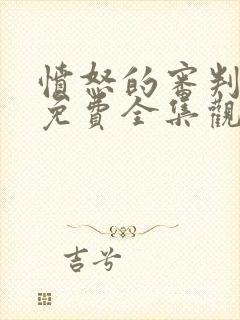 憤怒的審判
免費全集觀
吉兮